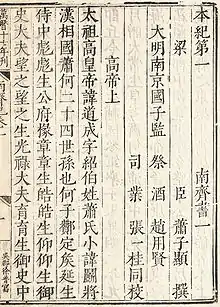 本紀第一　南齊書一
梁　臣蕭子顯撰
大明南京國子監祭酒趙用賢
司業張一桂同校
高帝上
太祖高皇帝諱道成字紹伯姓蕭氏小諱鬬將
漢相國蕭何二十四世孫也何子酇定矦延生
侍中彪彪生公府掾章章生皓皓生仰仰生御
史大夫望之望之生光祿大夫育育生御史中